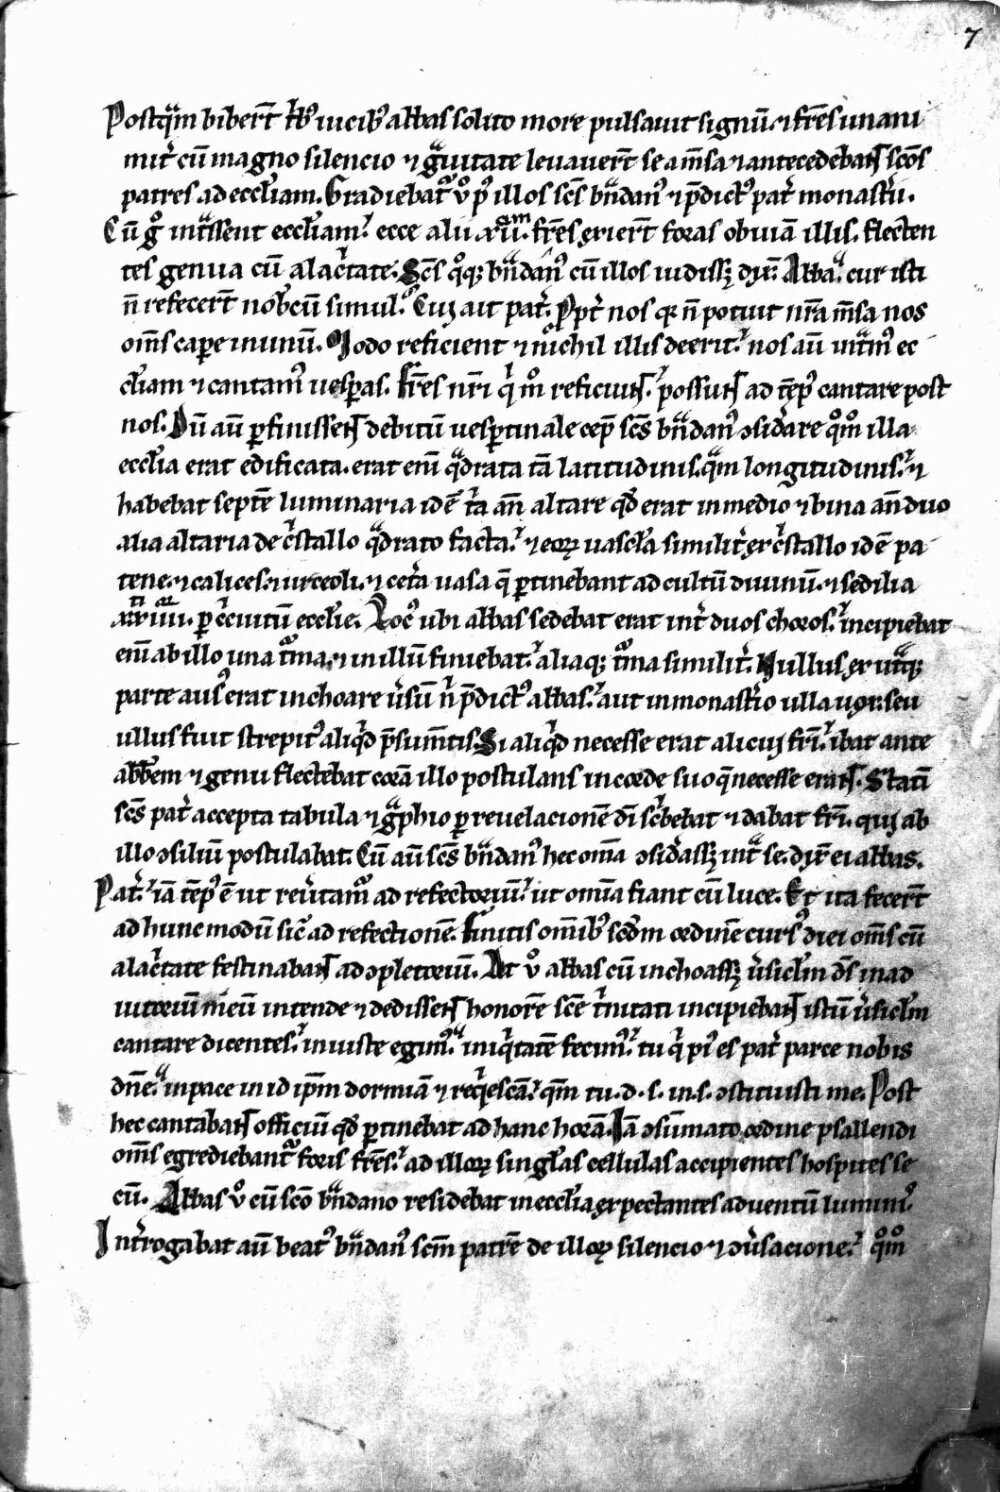 7
Postq̃m biberr̃t t͛bꝰ uicibꝰ abbas solito more pulsauit signũ. ⁊ fr̃es unani
mit͛ cũ magno silencio ⁊ gͣuitate leuauer̃t se a m̃sa ⁊ antecedebant sc̃os
patres ad eccl̃iam. Gradiebat᷑ v͛o p9 illos sc̃s bñdanꝰ ⁊ p̃dictꝰ pat͛ monast͛ii.
Cũ gͦ int͛ssent eccl̃iam. ecce alii .xii.am. fr̃es exier̃t foras obuiã illis. flecten
tes genua cũ alac͛tate. Sc̃s qͦqꝫ bñdanꝰ cũ illos uidissꝫ dix̃. Abba. cur isti
ñ refecer̃t nobcũ simul. Cui ait pat͛. Ppt͛ nos qꝛ ñ potuit nr̃a m̃sa nos
om̃s cap̲e in unũ. Modo reficient ⁊ nichil illis deerit. nos aũ int͛mꝰ ec
cl̃iam ⁊ cantamꝰ uesp̲as. fr̃es nr̃i qͥ mͦ reficiunt. possunt ad tẽpꝰ cantare post
nos. Dũ aũ p̲finissent debitũ uesp̲tinale cep̃ sc̃s bñdanꝰ ꝯsid͛are qͦmͦ illa
eccl̃ia erat edificata. erat eni᷑ qͣdrata tã latitudinis. qͣm longitudinis. ⁊
habebat septẽ luminaria idẽ t͛a añ altare qd̾ erat in medio ⁊ bina añ duo
alia altaria de c͛stallo qͣdrato facta. ⁊ eoꝝ uascl̃a similit͛ ex c͛stallo idẽ pa
tene. ⁊ calices. ⁊ urceoli. ⁊ cet͛a uasa q̃ p̲tinebant ad cultũ diuinũ. ⁊ sedilia
xxiiii. p̲ c͛cuitũ eccl̃ie. Locꝰ ubi abbas sedebat erat int͛ duos choros. incipiebat
eni᷑ ab illo una t᷑ma. ⁊ in illũ finiebat᷑. aliaqꝫ t᷑ma similit͛. Nullus ex ut͛qꝫ
parte ausꝰ erat inchoare u͛sũ n͛ p̃dictꝰ abbas. aut in monast͛io ulla uox. seu
ullus fuit strepitꝰ aliqͥd p̃sum̃tis. Si aliqͥd necesse erat alicui fr͛i. ibat ante
abb̃em ⁊ genu flectebat corã illo postulans in corde suo q̃ necesse erant. Statĩ
sc̃s pat͛ accepta tabula ⁊ gͣphio p̲ reuelacionẽ dĩ sc͛bebat ⁊ dabat fr͛i. qui ab
illo ꝯsiliũ postulabat. Cũ aũ sc̃s bñdanꝰ hec om̃ia ꝯsid͛assꝫ int͛ se. dix̃ ei abbas.
Pat͛. iã tẽpꝰ ẽ ut reu͛tamꝰ ad refectoriũ. ut omnia fiant cũ luce. Et ita fecer̃t
ad hunc modũ sic̃ ad refectionẽ. Finitis om̃ibꝰ scd̃m ordinẽ cursꝰ diei om̃s cũ
alac͛tate festinabant ad ꝯpletoriũ. At v͛o abbas cũ inchoassꝫ u͛sicl̃m d̃s in ad
iutoriũ meũ intende ⁊ dedissent honorẽ sc̃e t͛nitati incipiebant istũ u͛sicl̃m
cantare dicentes. iniuste egimꝰ. iniqͥtatẽ fecimꝰ. tu qͥ piꝰ es pat͛ parce nobis
dñe. in pace in id ip̃m dormiã ⁊ reqͥescã. qm̃ tu. d. s. in. s. ꝯstituisti me. Post
hec cantabant officiũ qd̾ p̲tinebat ad hanc horã. Iã ꝯsũmato ordine psallendi
om̃s egrediebant᷑ foris fr̃es. ad illoꝝ singl̃as cellulas accipientes hospites se
cũ. Abbas v͛o cũ sc̃o bñdano residebat in eccl̃ia expectantes aduentũ luminũ.
Int͛rogabat aũ beatꝰ bñdanꝰ sc̃m patrẽ de illoꝝ silencio ⁊ ꝯu͛sacione. qͦmͦ